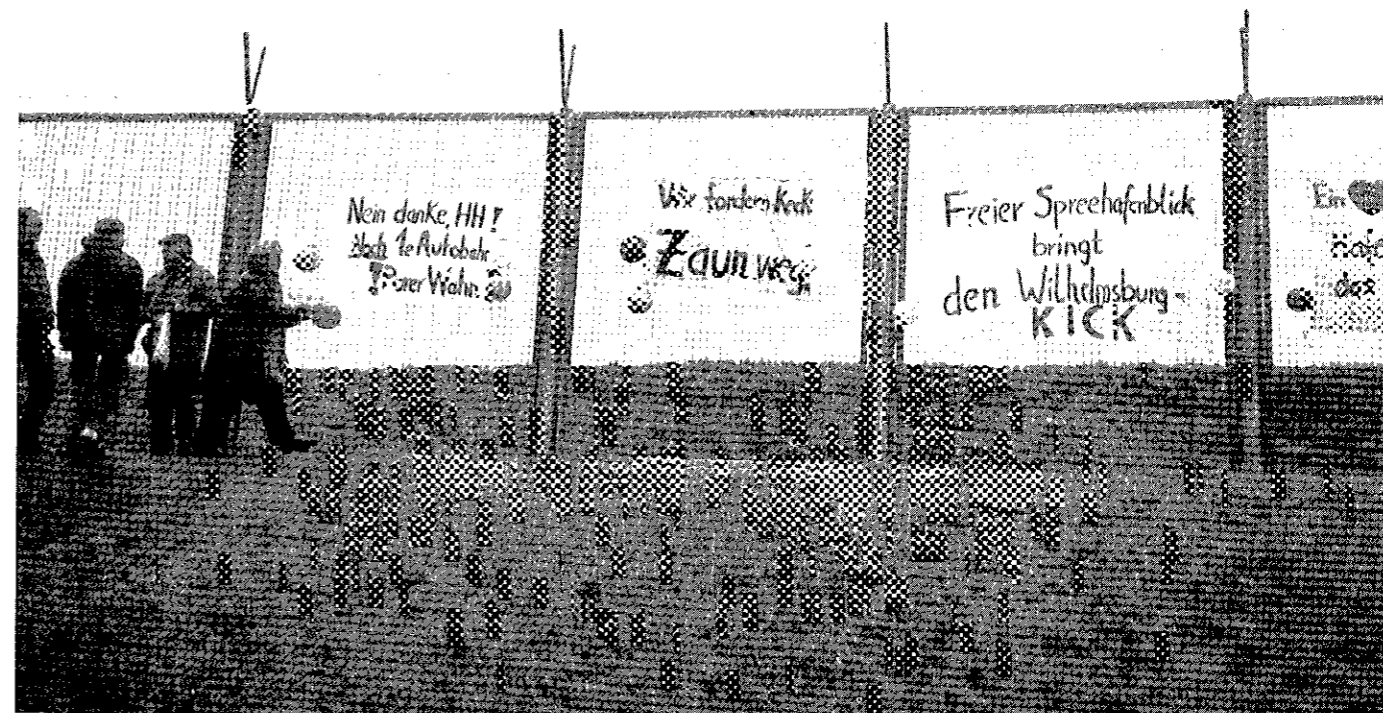 Nein danke, HH!
Noch 1e Autobahn
Wahn
Wir fordern keck
Zaun weg
Freier Spreehafenblick
bringt
den Wilhelmsburg-
KICK
Ein
Hafe
das